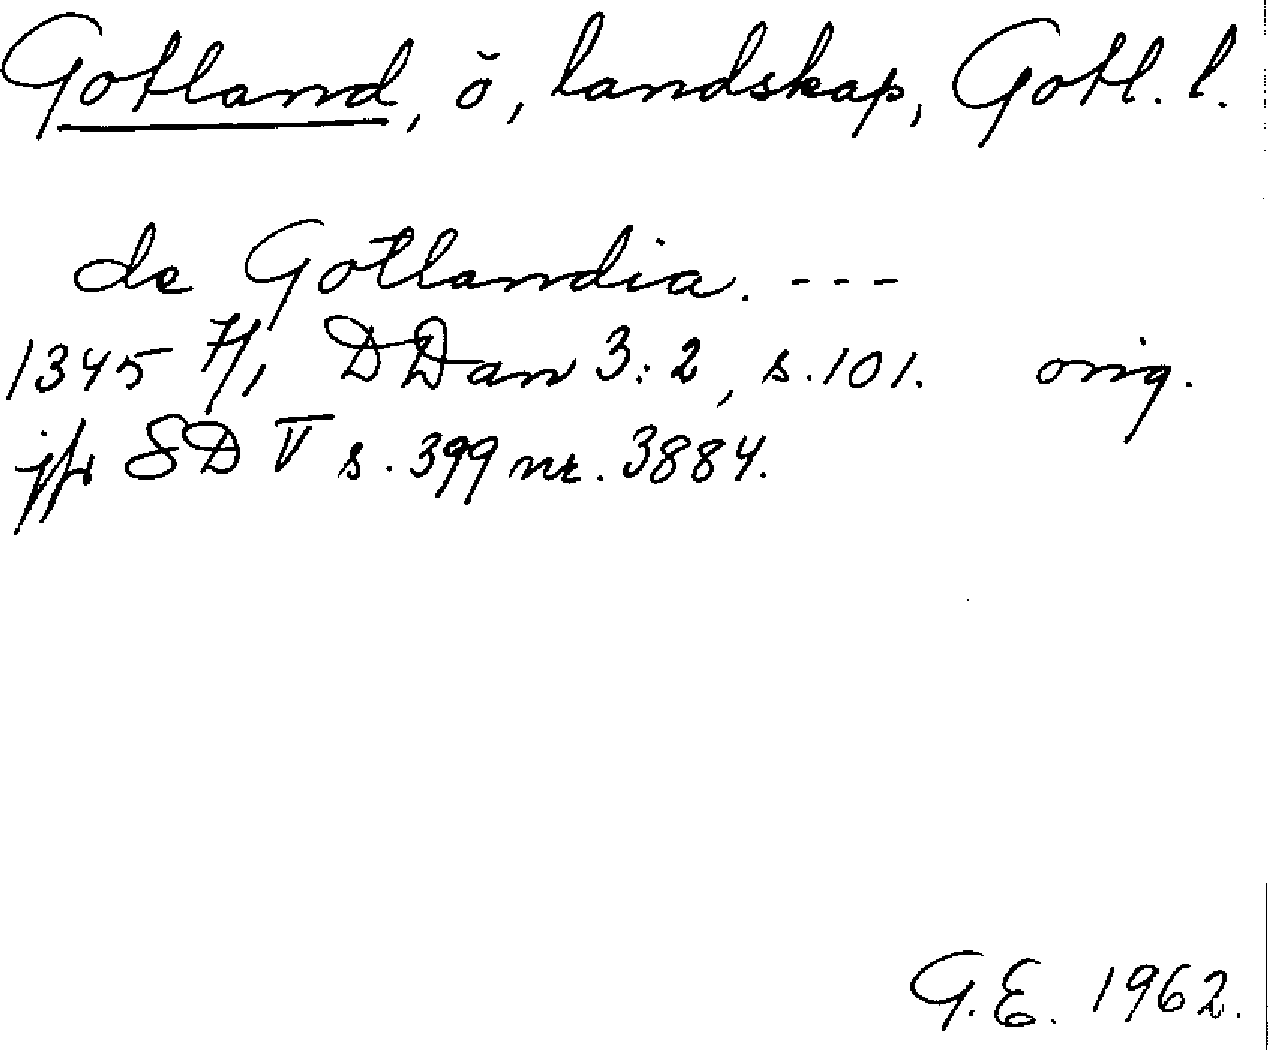 Gotland, ö, landskap, Gotl. l.
de Gotlandia. ---
1345 7/1, DDan 3:2, s. 101. orig.
jfr SD V s. 399 nr. 3884.
G.E. 1962.